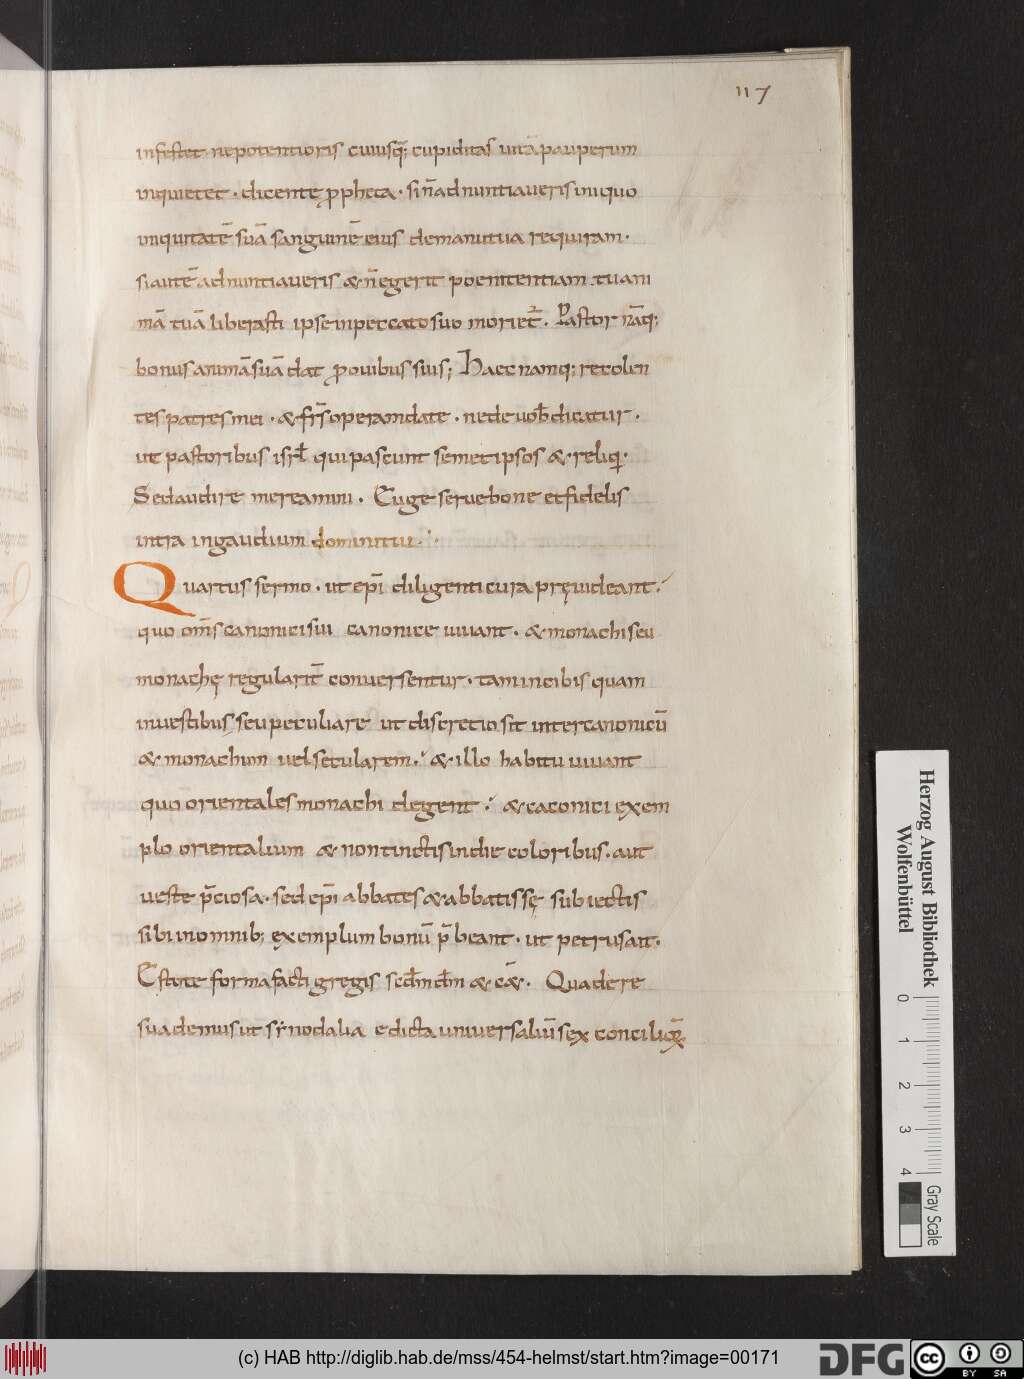 117
infestet. nepotentioris cuiusq; cupiditas uitā pauperum
inquietet. dicente ꝓpheta. sin̄ adnuntiaueris iniquo
iniquitatē suā sanguinē eius demanutua requiram.
siautē adnuntiaueris & n̄ egerit poenitentiam. tu ani
mā tuā liberasti ipseinpeccatosuo moriet̄. Pastor nāq;
bonus animā suā dat ꝓouibus suis; Haec namq; recolen
tes patres mei. & frs̄ operamdate. nede uob̄ dicatur.
ut pastoribus isrl̄ qui pascunt semetipsos & reliq.
Sedaudire mereamini. Euge serue bone et fidelis
intra ingaudium domini tui.
Quartus sermo. ut epī diligenti cura pręuideant.
quo oms̄ canonici sui canonice uiuant. & monachi seu
monachę regularit̄ conuersentur. tam incibis quam
inuestibus seu peculiare ut discretio sit inter canonicū
& monachum uel secularem. & illo habitu uiuant
quo orientales monachi degent. & caconici exem
plo orientalium & non tinctis indie coloribus. aut
ueste p̄ciosa. sed epī abbates & abbatissę subiectis
sibi inomnib; exemplum bonū p̄beant. ut petrus ait.
Estote forma facti gregis scdm̄ dm̄ & cā. Quadere
suademus ut synodalia edicta uniuersaliū sex concilioꝝ
Herzog August Bibliothek
Wolfenbüttel
0 1 2 3 4
Gray Scale
(c) HAB http://diglib.hab.de/mss/454-helmst/start.htm?image=00171
DFG
cc BY SA